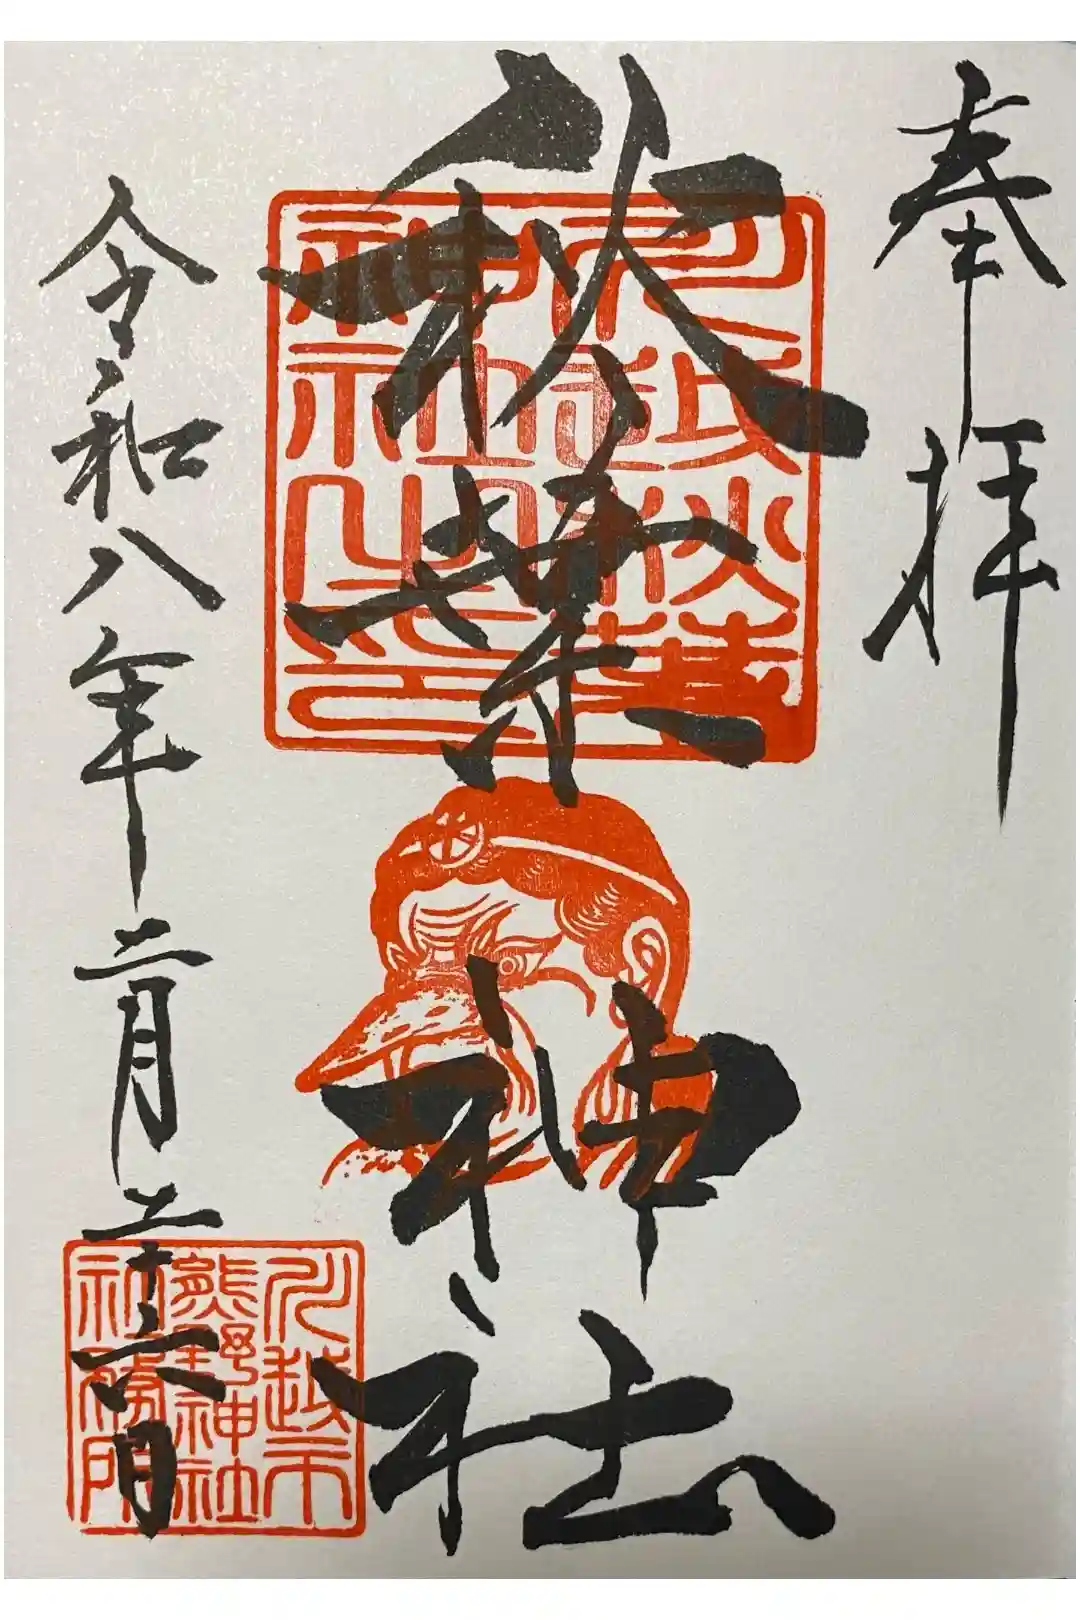 奉拝
秋葉神社
令和八年二月二十六日
川越市
熊野神社
社務所